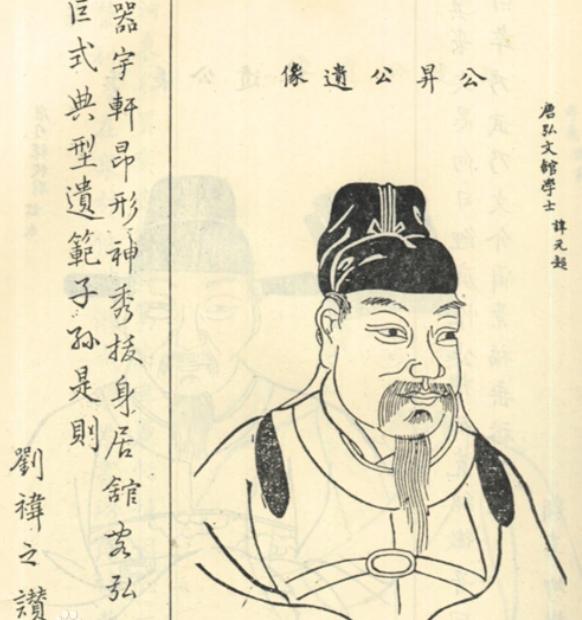 唐弘文館學士 諱元超
公昇公遺像
器宇軒昂形神秀拔身居舘弘
式典型遺範子孫是則
劉禕之讚